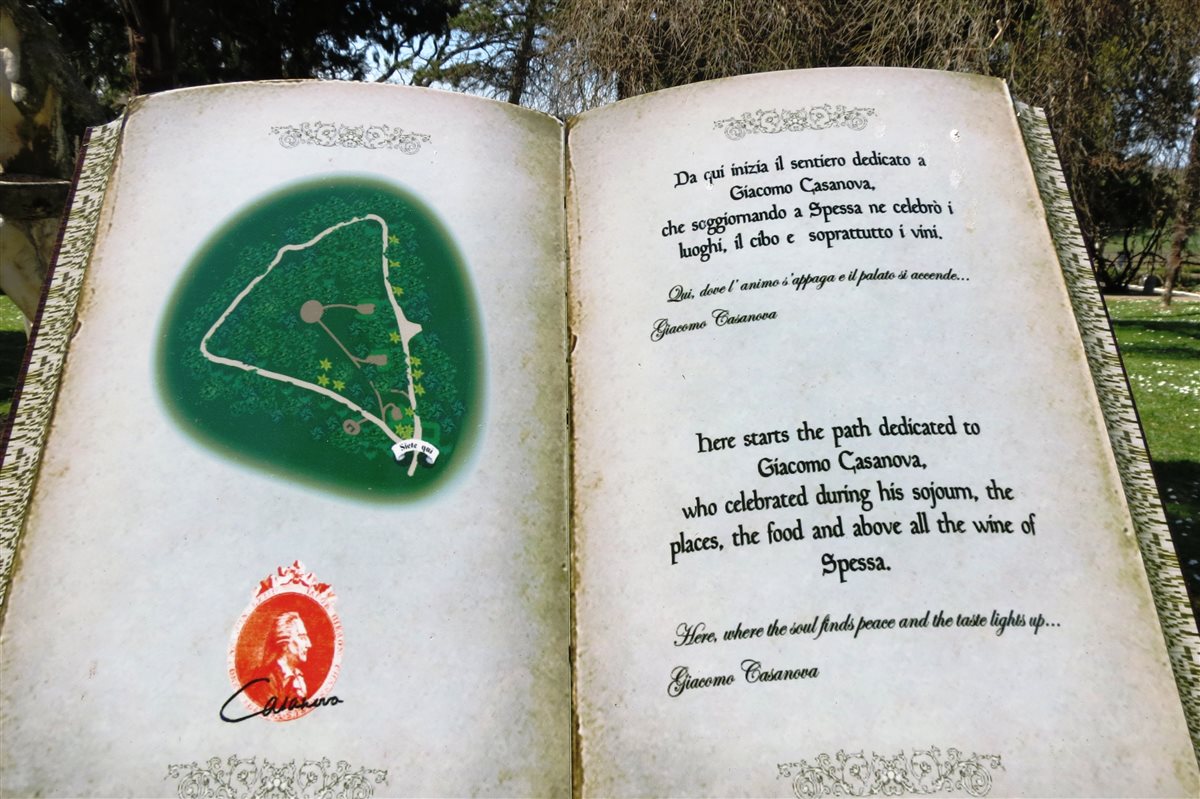 Siete qui
Casanova
Da qui inizia il sentiero dedicato a
Giacomo Casanova,
che soggiornando a Spessa ne celebrò i
luoghi, il cibo e soprattutto i vini.
Qui, dove l'animo s'appaga e il palato si accende...
Giacomo Casanova
here starts the path dedicated to
Giacomo Casanova,
who celebrated during his sojourn, the
places, the food and above all the wine of
Spessa.
Here, where the soul finds peace and the taste lights up...
Giacomo Casanova